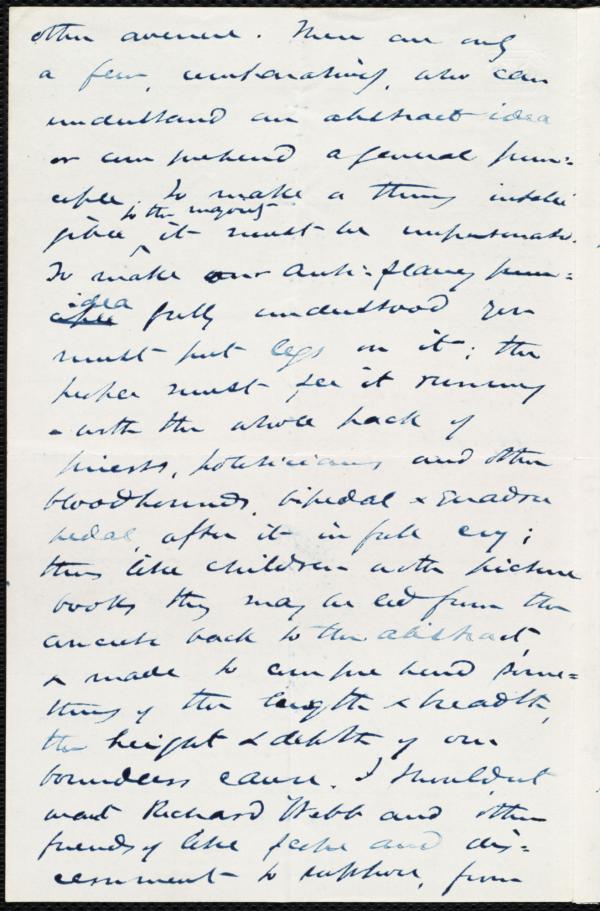 other avenue. There are only
a few, comparatively, who can
understand an abstract idea
or comprehend a general prin=
ciple. To make a thing intelli
to the majority
gible it must be impersonate.
To make our anti-slavery prin=
idea
ciple fully understood you
must put legs on it; the
people must see it running
- with the whole pack of
priests, politicians and other
bloodhounds, bipedal & quadru
pedal after it in full cry;
thus like children with picture
books they may be led from the
concrete back to the abstract,
& made to comprehend some=
thing of the length & breadth,
the height & depth of our
boundless cause. I shouldn't
want Richard Webb and other
friends of like faith and dis=
cernment to suppose, from